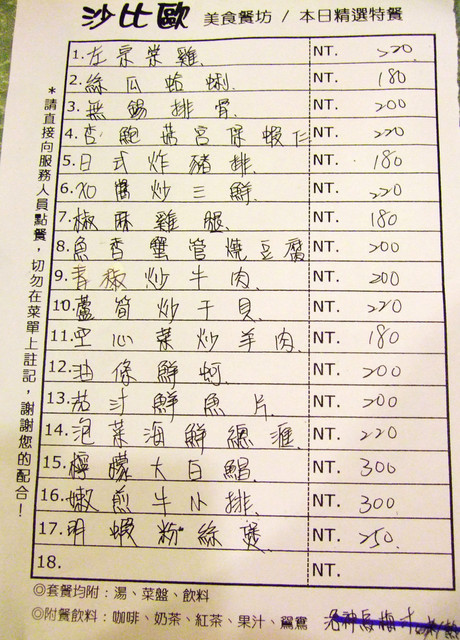 沙比歐 美食餐坊 / 本日精選特餐
1. 左宗棠雞 NT. 220
2. 絲瓜蛤蜊 NT. 180
3. 無錫排骨 NT. 200
4. 杏鮑菇宮保蝦仁 NT. 220
5. 日式炸豬排 NT. 180
6. XO醬炒三鮮 NT. 220
7. 椒麻雞腿 NT. 180
8. 魚香蟹管燒豆腐 NT. 200
9. 青椒炒牛肉 NT. 200
10. 蘆筍炒干貝 NT. 220
11. 空心菜炒羊肉 NT. 180
12. 油條鮮蚵 NT. 200
13. 茄汁鮮魚片 NT. 200
14. 泡菜海鮮總匯 NT. 220
15. 檸檬大白鯧 NT. 300
16. 嫩煎牛小排 NT. 300
17. 明蝦粉絲煲 NT. 250
18. NT.
＊請直接向服務人員點餐，切勿在菜單上註記，謝謝您的配合！
◎套餐均附：湯、菜盤、飲料
◎附餐飲料：咖啡、奶茶、紅茶、果汁、鴛鴦